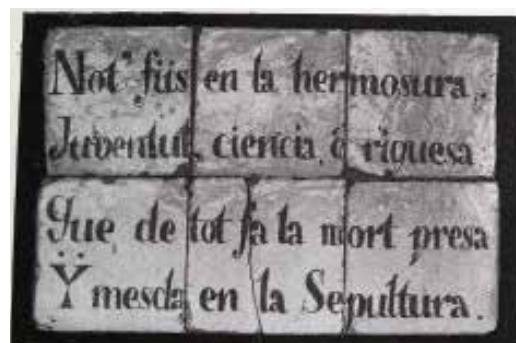 Not' fiis en la hermosura,
Juventut, ciencia, ò riquesa
Que de tot fa la mort presa
Ÿ mescla en la Sepultura.